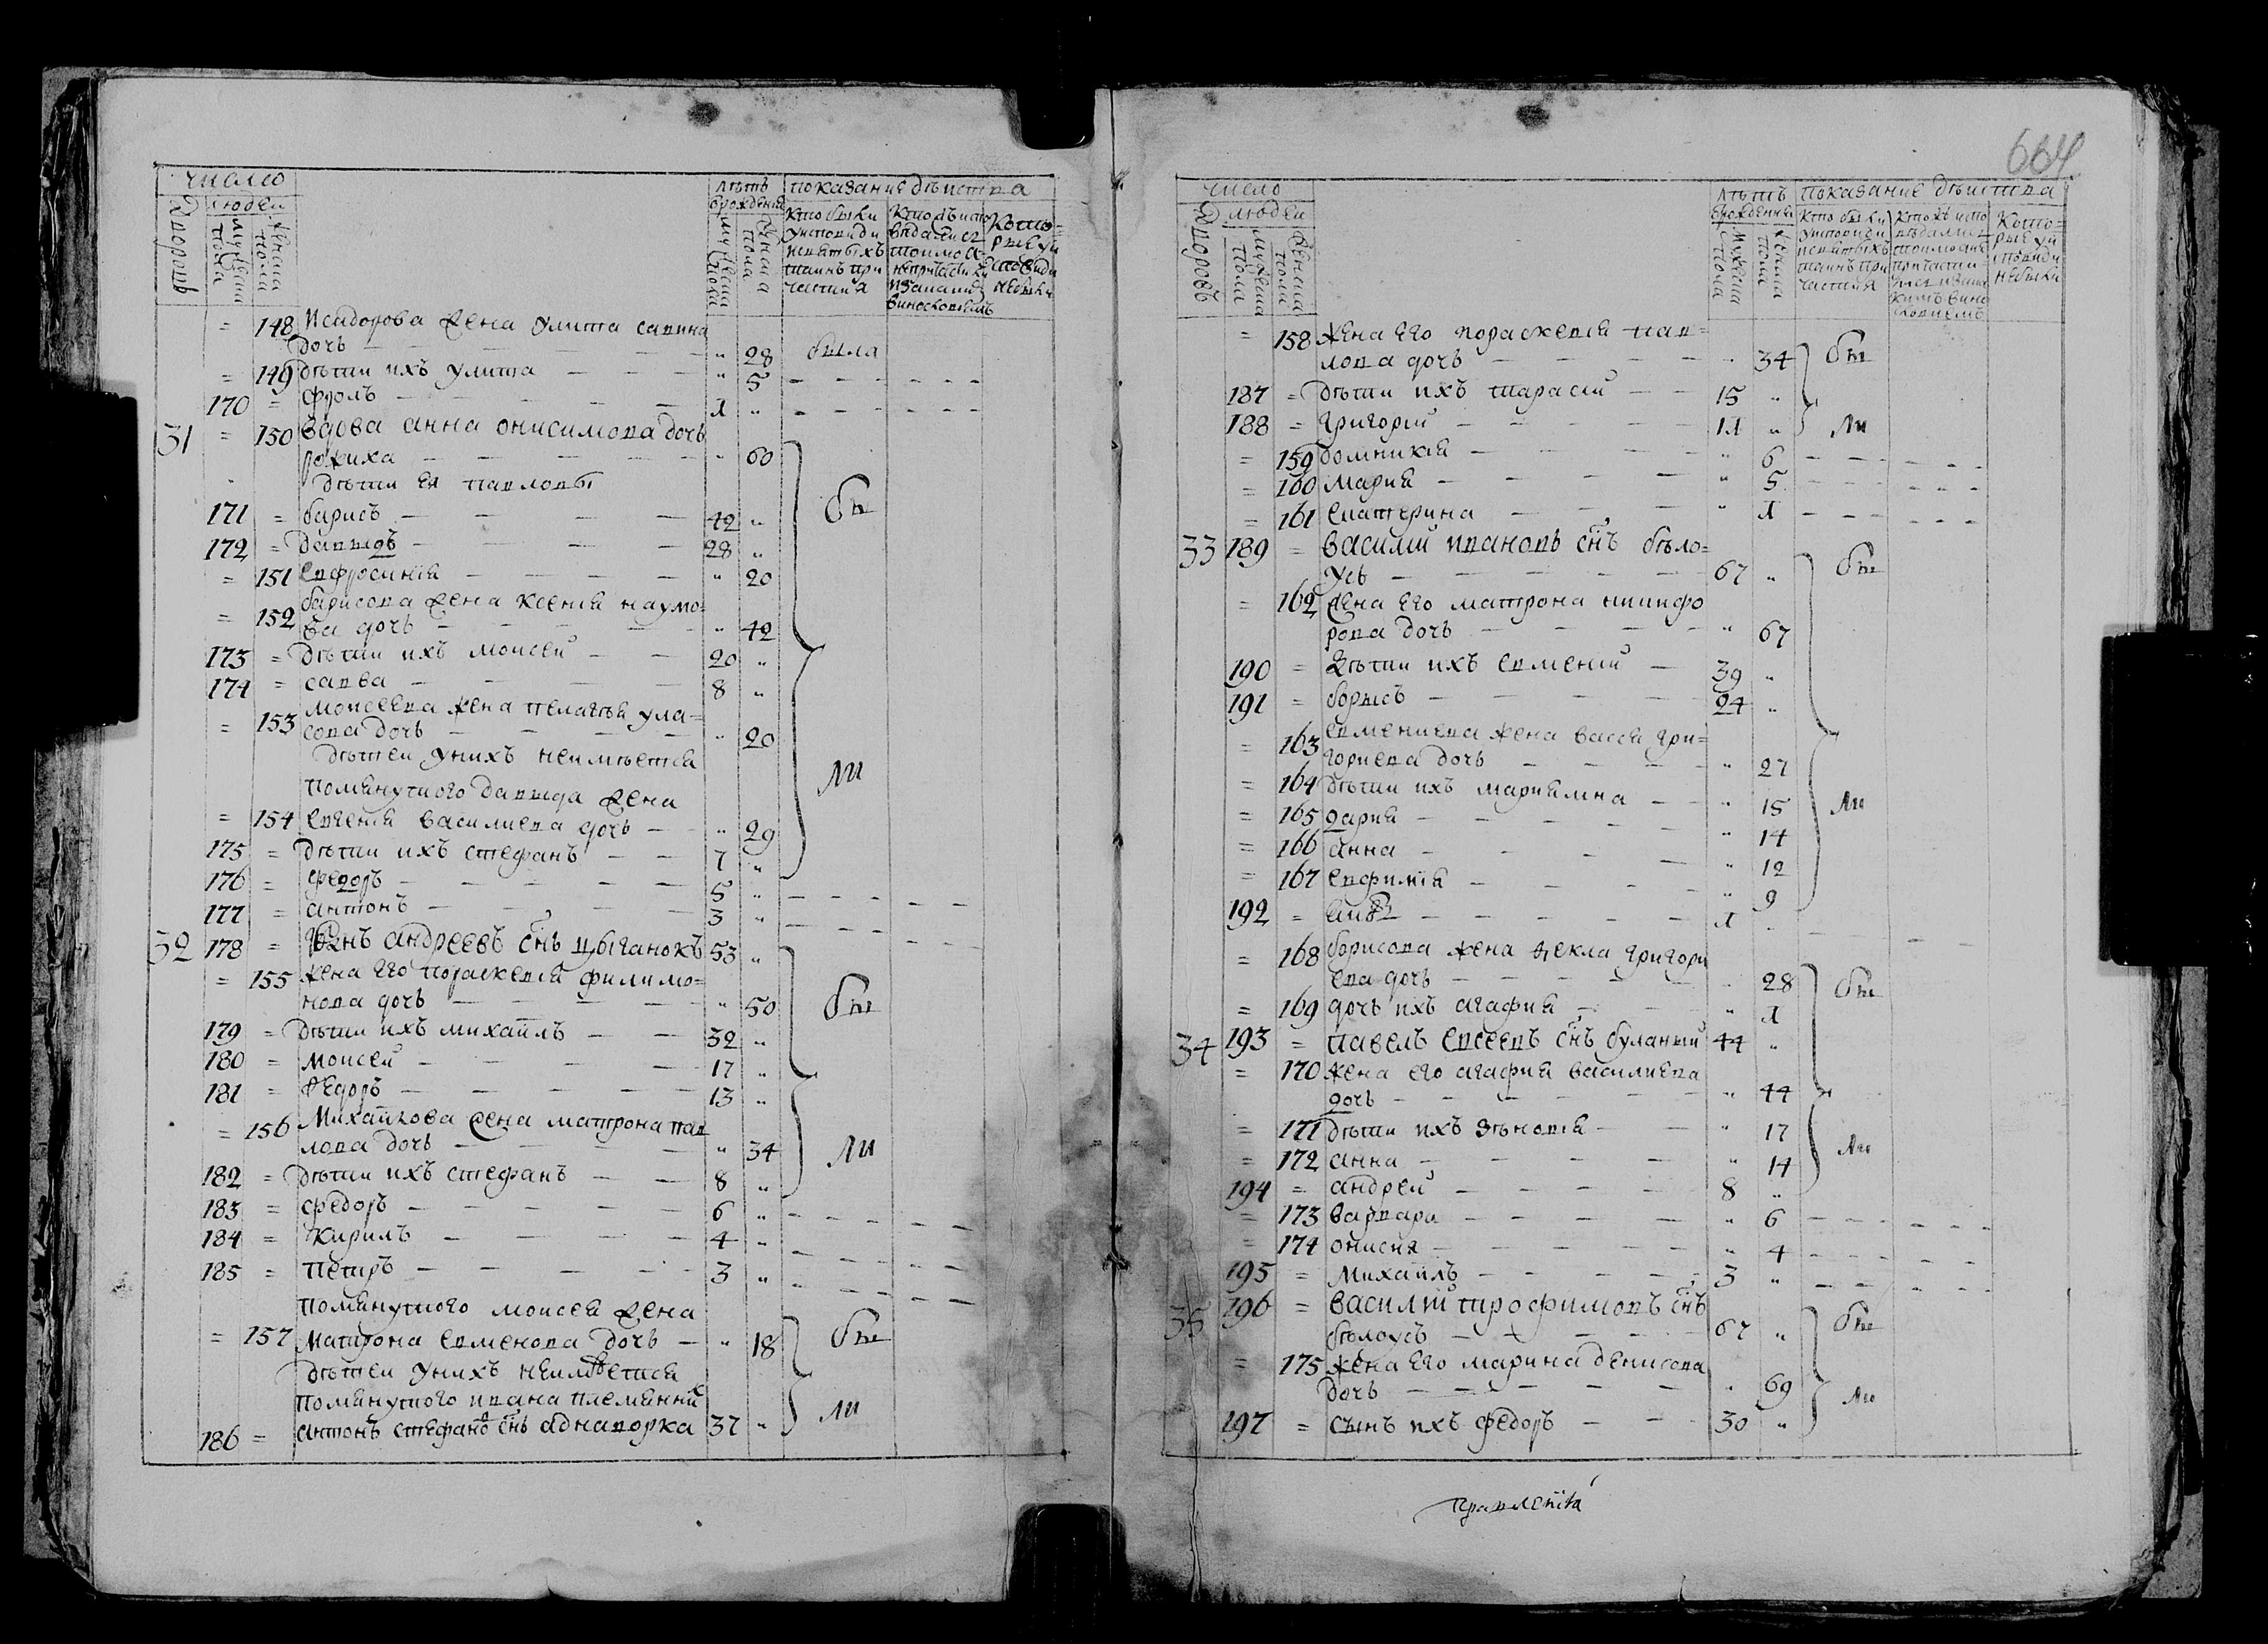 число
лѣтъ
показание дѣиства
Дворовъ
людеи
мужеска пола
женска пола
врождения
мужеска пола
женска пола
Кто были
уисповиди
исвятыхъ
таинъ при
частия
Которые уи
споведи
небыли
= 148 Исидорова жена Улита савина
дочь — „ 28 была
= 149 дѣти ихъ улита — „ 5
170 = фролъ — 1 „
31 = 150 вдова анна онисимова дочь
рожиха — „ 60
дѣти ея павловы
171 = барисъ — 42 „ бы
172 = давыдъ — 28 „
= 151 Евфросиния — „ 20
= 152 барисова жена ксения наумо=
ва дочь — „ 42
173 = дѣти ихъ моисеи — 20 „
174 = савва — 8 „
= 153 моисеева жена пелагѣя ула=
сова дочь — „ 20
дѣтеи унихъ неимѣетса
ли
помянутого давыда жена
= 154 Евгения василиева дочь — „ 29
175 = дѣти ихъ стефанъ — 7 „
176 = федоръ — 5 „
177 = антонъ — 3 „
32 178 = Иванъ андреевъ снъ цыганокъ 53 „
= 155 жена его параскевия филимо=
нова дочь — „ 50 бы
179 = дѣти ихъ михаилъ — 32 „
180 = моисеи — 17 „
181 = Федоръ — 13 „
= 156 Михаилова жена матрона пав
лова дочь — „ 34 ли
182 = дѣти ихъ стефанъ — 8 „
183 = федоръ — 6 „
184 = Кирилъ — 4 „
185 = Петръ — 3 „
помянутого моисея жена
= 157 Матрона семенова дочь — „ 18 бы
дѣтеи унихъ неимѣетса
помянутого ивана племянни
186 = антонъ стефановъ снъ аднаворка 37 „ ли
664
число
лѣтъ
показание дѣиства
Дворовъ
людеи
мужеска пола
женска пола
врождения
мужеска пола
женска пола
Кото=
рые уи
споведи
небыли
= 158 жена его пораскевия пав=
лова дочь — „ 34 бы
187 = дѣти ихъ тарасии — 15 „
188 = григории — 11 „ ли
= 159 домникия — „ 6
= 160 Мария — „ 5
= 161 Екатерина — „ 1
33 189 = василии ивановъ снъ бѣло=
усъ — 67 „ бы
= 162 жена его матрона никифо
рова дочь — „ 67
190 = дѣти ихъ семении — 39 „
191 = борысъ — 24 „
= 163 семениева жена васса гри=
гориева дочь — „ 27
= 164 дѣти ихъ мариямна — „ 15 ли
= 165 дария — „ 14
= 166 анна — „ 12
= 167 Евфимия — „ 9
192 = — 1 „
= 168 борисова жена текла григори
ева дочь — „ 28 бы
= 169 дочь ихъ агафия — „ 1
34 193 = павелъ евсеевъ снъ буланыи 44 „
= 170 жена его агафия василиева
дочь — „ 44
= 171 дѣти ихъ зѣновия — „ 17
= 172 анна — „ 14 ли
194 = андреи — 8 „
= 173 варвара — „ 6
= 174 онисия — „ 4
195 = Михаилъ — 3 „
35 196 = василии трофимовъ снъ
бѣлоусъ — 67 „ бы
= 175 жена его марина денисова
дочь — „ 69 ли
197 = сынъ ихъ федоръ — 30 „